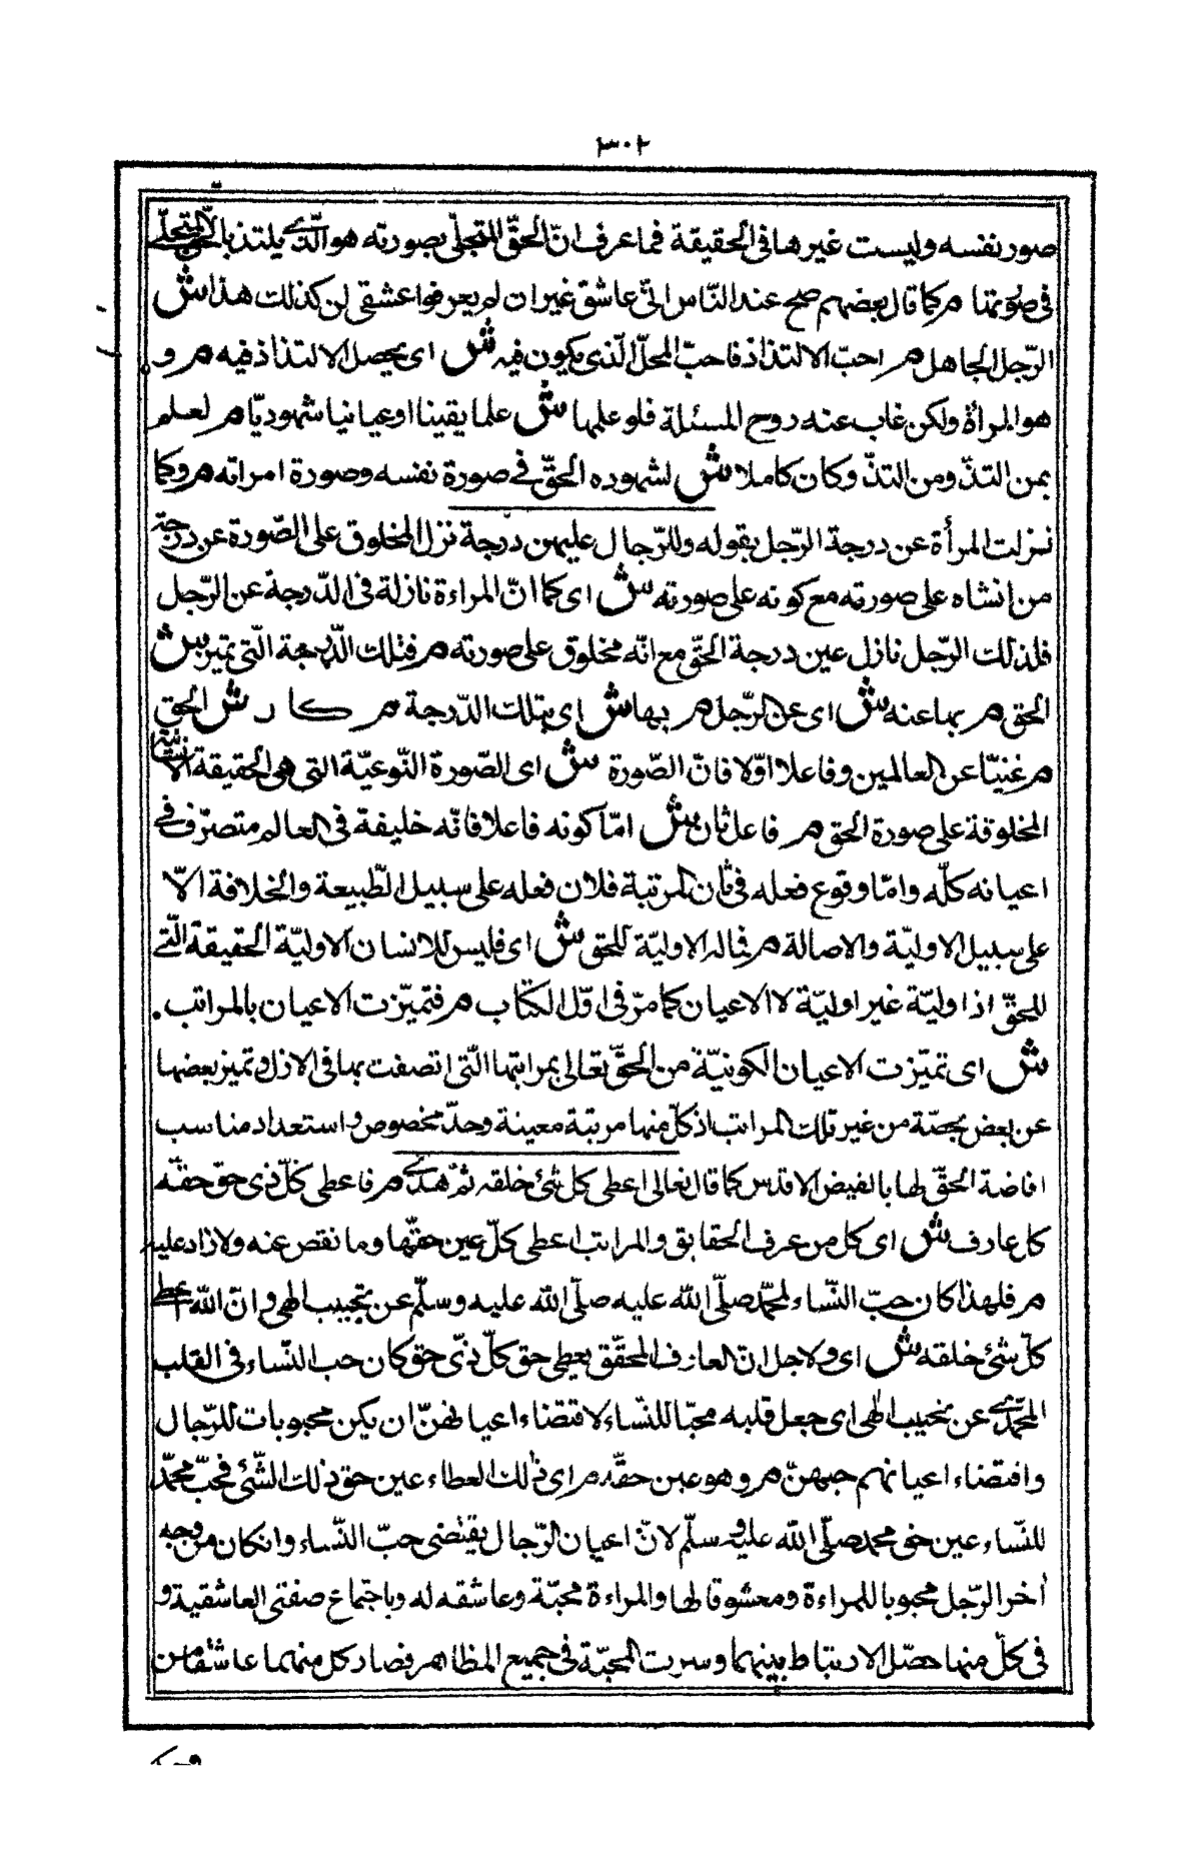 ٣٠٢
صور نفسه وليست غيرها فى الحقيقة فما عرف انّ الحقّ المتجلّى بصورته هو الّذى يلتذ بالحق المتجلّى
فى صورتها م كما قال بعضهم صح عند النّاس انّى عاشق غير ان لم يعرفوا عشقى لمن كذلك هذا ش
الرّجل الجاهل م احبّ الالتذاذ فاحبّ المحلّ الّذى يكون فيه ش اى يحصل الالتذاذ فيه م و
هو المرأة ولكن غاب عنه روح المسئلة فلو علمها ش علما يقينا او عيانيا شهوديّا م لعلم
بمن التذّ ومن التذّ وكان كاملا ش لشهوده الحقّ فى صورة نفسه وصورة امراته م وكما
نزلت المرأة عن درجة الرّجل بقوله وللرّجال عليهن درجة نزل المخلوق على الصّورة عن درجة
من انشاه على صورته مع كونه على صورته ش اى كما انّ المراءة نازلة فى الدّرجة عن الرّجل
فلذلك الرّجل نازل عين درجة الحقّ مع انّه مخلوق على صورته م فتلك الدّرجة الّتى تميّز ش
الحق م بها عنه ش اى عن الرّجل م بها ش اى بتلك الدّرجة م كان ش الحق
م غنيّا عن العالمين وفاعلا اوّلا فانّ الصّورة ش اى الصّورة النّوعيّة التى هى الحقيقة الانسانيّة
المخلوقة على صورة الحق م فاعل ثان ش امّا كونه فاعلا فانّه خليفة فى العالم متصرّف فى
اعيانه كلّه وامّا وقوع فعله فى ثان المرتبة فلان فعله على سبيل الطّبيعة والخلافة الّا
على سبيل الاوليّة والاصالة م فماله الاوليّة للحق ش اى فليس للانسان الاوليّة الحقيقة الّتى
للحقّ اذ اوليّة غير اوليّة لا الاعيان كما مرّ فى اوّل الكتاب م فتميّزت الاعيان بالمراتب.
ش اى تميّزت الاعيان الكونيّة من الحقّ تعالى بمراتبها الّتى اتصفت بها فى الازل وتميز بعضها
عن بعض بحصّة من غير تلك المراتب اذ كلّ منها مرتبة معينة وحدّ مخصوص واستعداد مناسب
افاضة الحقّ لها بالفيض الاقدس كما قال تعالى اعطى كل شئ خلقه ثمّ هدى م فاعطى كلّ ذى حق حقّه
كل عارف ش اى كل من عرف الحقايق والمراتب اعطى كلّ عين حقّها وما نقص عنه ولا زاد عليه
م فلهذا كان حبّ النّساء لمحمّد صلّى الله عليه صلّى الله عليه وسلّم عن تحبيب الهى وانّ الله اعطى
كلّ شئ خلقه ش اى ولاجل انّ العارف المحقّق يعطى حق كلّ ذى حق كان حب النّساء فى القلب
المحمّدى عن تحبيب الهى اى جعل قلبه محبّا للنّساء لاقتضاء اعيانهنّ ان يكن محبوبات للرّجال
واقتضاء اعيانهم حبهنّ م وهو عين حقّه م اى ذلك العطاء عين حق ذلك الشّئ فحبّ محمّد
للنّساء عين حق محمد صلّى الله عليه وسلّم لانّ اعيان الرّجال يقتضى حبّ النّساء وانكان من وجه
أخر الرّجل محبوبا للمراءة ومعشوقا لها والمراءة محبّة وعاشقه له وباجتماع صفتى العاشقية و
فى كلّ منها حصّل الارتباط بينهما وسرت المحبّة فى جميع المظاهر فصار كل منهما عاشقا من